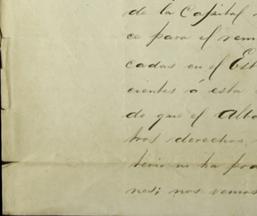 de la Capital
ce para el rem
cadas en el Est
cientes á esta
do que el Alba
tros derechos,
terio no ha pro
nes; nos vemos